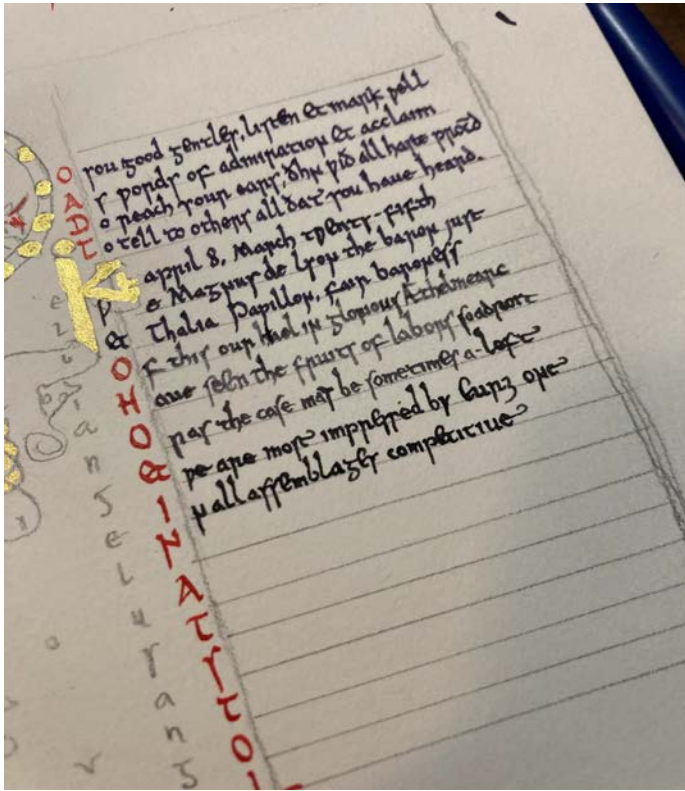 you good gentles, listen & mark well
s words of admiration & acclaim
o reach your ears, wið all haste
o tell to others all ðat you haue heard.
april 8, March twenty-fifth
e Magnus de Lyon the baron just
& Thalia Papillon, fair baroness
O f this our in glorious Æthelmearc
H aue seen the fruits of labors
O the case may be sometimes a-loft
& we are most impressed by one
I n all assemblages competitiue
N
A
T
S
T
O
I
a
n
g
e
l
u
s
a
n
g